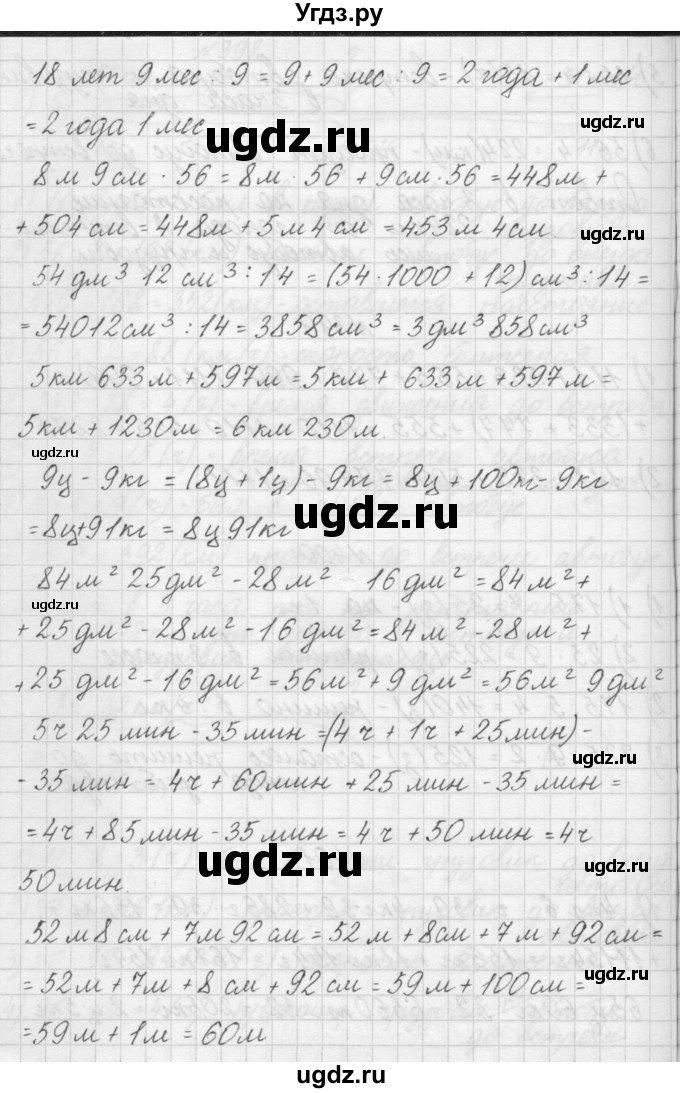 Угдз.ру
18 лет 9 мес : 9 = 9 + 9 мес : 9 = 2 года + 1 мес
= 2 года 1 мес
ugdz.ru
ugdz.ru
8 м 9 см · 56 = 8 м · 56 + 9 см · 56 = 448 м +
+ 504 см = 448 м + 5 м 4 см = 453 м 4 см.
ugdz.ru
54 дм³ 12 см³ : 14 = (54 · 1000 + 12) см³ : 14 =
= 54012 см³ : 14 = 3858 см³ = 3 дм³ 858 см³
5 км 633 м + 597 м = 5 км + 633 м + 597 м =
5 км + 1230 м = 6 км 230 м.
ugdz.ru
9 ц - 9 кг = (8 ц + 1 ц) - 9 кг = 8 ц + 100 - 9 кг
ugdz.ru
= 8 ц + 91 кг = 8 ц 91 кг
ugdz.ru
84 м² 25 дм² - 28 м² 16 дм² = 84 м² +
ugdz.ru
+ 25 дм² - 28 м² - 16 дм² = 84 м² - 28 м² +
+ 25 дм² - 16 дм² = 56 м² + 9 дм² = 56 м² 9 дм²
5 ч 25 мин - 35 мин = (4 ч + 1 ч + 25 мин) -
- 35 мин = 4 ч + 60 мин + 25 мин - 35 мин =
= 4 ч + 85 мин - 35 мин = 4 ч + 50 мин = 4 ч
ugdz.ru
ugdz.ru
50 мин.
52 м 8 см + 7 м 92 см = 52 м + 8 см + 7 м + 92 см =
= 52 м + 7 м + 8 см + 92 см = 59 м + 100 см =
ugdz.ru
= 59 м + 1 м = 60 м
ugdz.ru